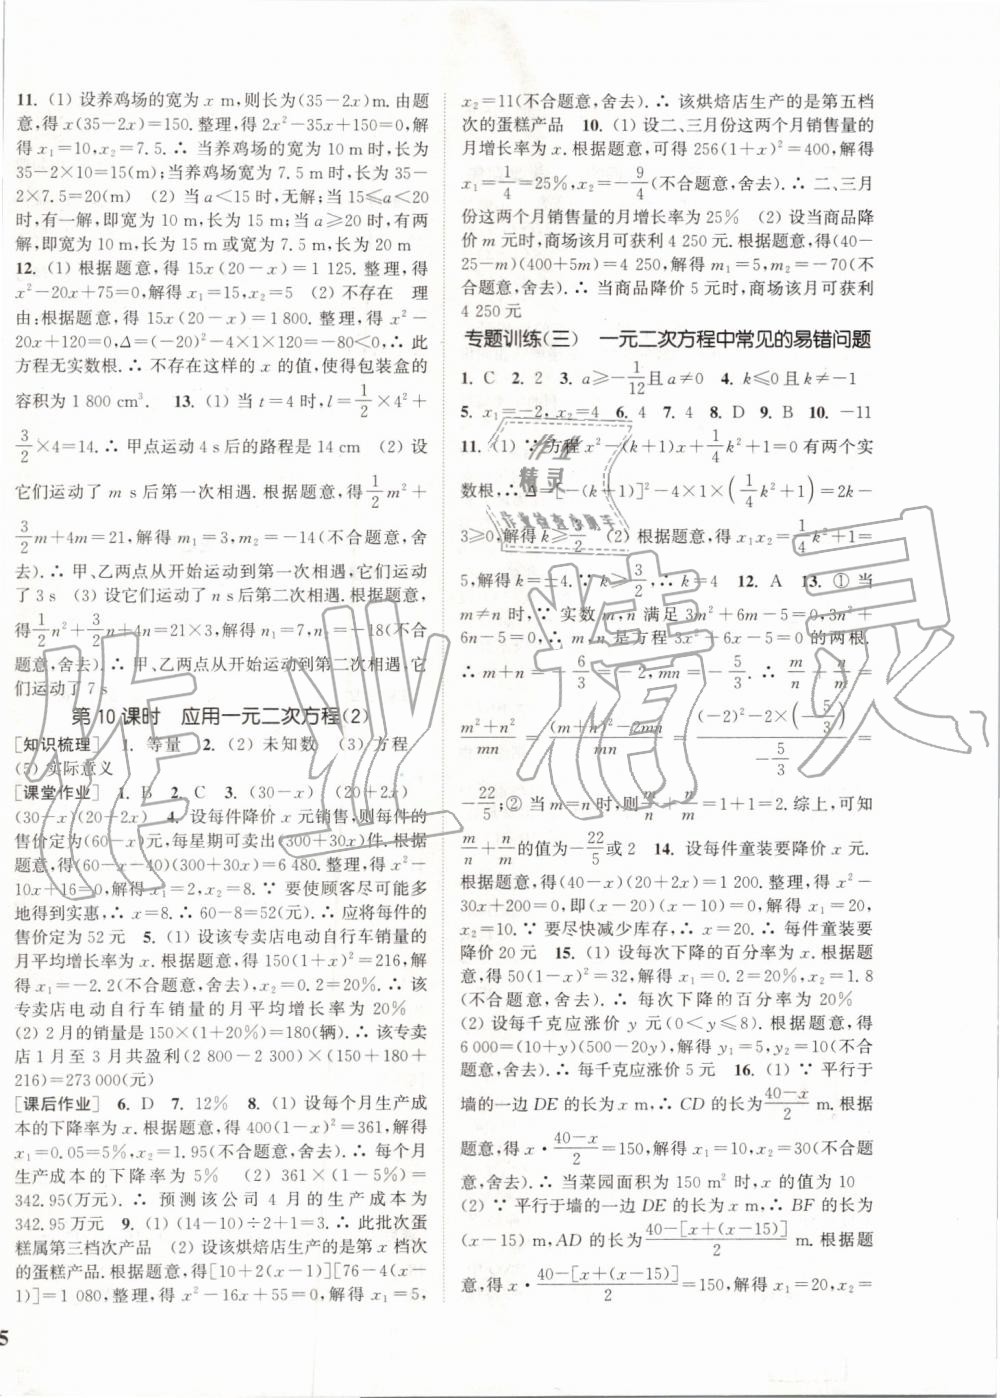 11. (1) 设养鸡场的宽为 x m,则长为(35-2x)m. 由题
意,得 x(35-2x)=150. 整理,得 2x²-35x+150=0,解
得 x₁=10,x₂=7.5. ∴ 当养鸡场的宽为 10 m时,长为
35-2×10=15(m);当养鸡场的宽为 7.5 m时,长为35-
2×7.5=20(m) (2) 当 a<15 时,无解;当 15≤a<20
时,有一解,即宽为 10 m,长为 15 m;当 a≥20 时,有两
解,即宽为 10 m,长为 15 m或宽为 7.5 m,长为 20 m
12. (1) 根据题意,得 15x(20-x)=1 125. 整理,得
x²-20x+75=0,解得 x₁=15,x₂=5 (2) 不存在 理
由:根据题意,得 15x(20-x)=1 800. 整理,得 x²-
20x+120=0,Δ=(-20)²-4×1×120=-80<0,∴ 此
方程无实数根. ∴ 不存在这样的 x 的值,使得包装盒的
容积为 1 800 cm³. 13. (1) 当 t=4 时,l=1/2×4²+
3/2×4=14. ∴ 甲点运动 4 s后的路程是 14 cm (2) 设
它们运动了 m s后第一次相遇. 根据题意,得 1/2m²+
3/2m+4m=21,解得 m₁=3,m₂=-14(不合题意,舍
去). ∴ 甲、乙两点从开始运动到第一次相遇,它们运动
了 3 s (3) 设它们运动了 n s后第二次相遇. 根据题意,
得 1/2n²+3/2n+4n=21×3,解得 n₁=7,n₂=-18(不合
题意,舍去). ∴ 甲、乙两点从开始运动到第二次相遇,它
们运动了 7 s
第 10 课时 应用一元二次方程(2)
[知识梳理] 1. 等量 2. (2) 未知数 (3) 方程
(5) 实际意义
[课堂作业] 1. B 2. C 3. (30-x) (20+2x)
(30-x)(20+2x) 4. 设每件降价 x 元销售,则每件的
售价定为(60-x)元,每星期可卖出(300+30x)件. 根据
题意,得(60-x-40)(300+30x)=6 480. 整理,得 x²-
10x+16=0,解得 x₁=2,x₂=8. ∵ 要使顾客尽可能多
地得到实惠,∴ x=8. ∴ 60-8=52(元). ∴ 应将每件的
售价定为 52 元 5. (1) 设该专卖店电动自行车销量的
月平均增长率为 x. 根据题意,得 150(1+x)²=216,解
得 x₁=-2.2(不合题意,舍去),x₂=0.2=20%. ∴ 该
专卖店电动自行车销量的月平均增长率为 20%
(2) 2 月的销量是 150×(1+20%)=180(辆). ∴ 该专卖
店 1 月至 3 月共盈利(2 800-2 300)×(150+180+
216)=273 000(元)
[课后作业] 6. D 7. 12% 8. (1) 设每个月生产成
本的下降率为 x. 根据题意,得 400(1-x)²=361,解得
x₁=0.05=5%,x₂=1.95(不合题意,舍去). ∴ 每个月
生产成本的下降率为 5% (2) 361×(1-5%)=
342.95(万元). ∴ 预测该公司 4 月的生产成本为
342.95 万元 9. (1) (14-10)÷2+1=3. ∴ 此批次蛋
糕属第三档次产品 (2) 设该烘焙店生产的是第 x 档次
的蛋糕产品. 根据题意,得[10+2(x-1)][76-4(x-
1)]=1 080,整理,得 x²-16x+55=0,解得 x₁=5,
5
x₂=11(不合题意,舍去). ∴ 该烘焙店生产的是第五档
次的蛋糕产品 10. (1) 设二、三月份这两个月销售量的
月增长率为 x. 根据题意,可得 256(1+x)²=400,解得
x₁=1/4=25%,x₂=-9/4(不合题意,舍去). ∴ 二、三月
份这两个月销售量的月增长率为 25% (2) 设当商品降
价 m 元时,商场该月可获利 4 250 元. 根据题意,得(40-
25-m)(400+5m)=4 250,解得 m₁=5,m₂=-70(不
合题意,舍去). ∴ 当商品降价 5 元时,商场该月可获利
4 250 元
专题训练(三) 一元二次方程中常见的易错问题
1. C 2. 2 3. a≥-1/12且 a≠0 4. k≤0且 k≠-1
5. x₁=-2,x₂=4 6. 4 7. 4 8. D 9. B 10. -11
11. (1) ∵ 方程 x²-(k+1)x+1/4k²+1=0 有两个实
数根,∴ Δ=[-(k+1)]²-4×1×(1/4k²+1)=2k-
3≥0,解得 k≥3/2 (2) 根据题意,得 x₁x₂=1/4k²+1=
5,解得 k=±4. ∵ k≥3/2,∴ k=4 12. A 13. ① 当
m≠n 时,∵ 实数 m,n 满足 3m²+6m-5=0,3n²+
6n-5=0,∴ m,n 是方程 3x²+6x-5=0 的两根.
∴ m+n=-6/3=-2,mn=-5/3. ∴ m/n+n/m=
(m²+n²)/mn=((m+n)²-2mn)/mn=((-2)²-2×(-5/3))/(-5/3)=
-22/5;② 当 m=n 时,则 m/n+n/m=1+1=2. 综上,可知
m/n+n/m的值为-22/5或2 14. 设每件童装要降价 x 元.
根据题意,得(40-x)(20+2x)=1 200. 整理,得 x²-
30x+200=0,即(x-20)(x-10)=0,解得 x₁=20,
x₂=10. ∵ 要尽快减少库存,∴ x=20. ∴ 每件童装要
降价 20 元 15. (1) 设每次下降的百分率为 x. 根据题
意,得 50(1-x)²=32,解得 x₁=0.2=20%,x₂=1.8
(不合题意,舍去). ∴ 每次下降的百分率为 20%
(2) 设每千克应涨价 y 元(0<y≤8). 根据题意,得
6 000=(10+y)(500-20y),解得 y₁=5,y₂=10(不合
题意,舍去). ∴ 每千克应涨价 5 元 16. (1) ∵ 平行于
墙的一边 DE 的长为 x m,∴ CD 的长为(40-x)/2 m. 根据
题意,得 x·(40-x)/2=150,解得 x₁=10,x₂=30(不合题
意,舍去). ∴ 当菜园面积为 150 m²时,x 的值为 10
(2) ∵ 平行于墙的一边 DE 的长为 x m,∴ BF 的长为
(x-15) m,AD 的长为(40-[x+(x-15)])/2 m. 根据题
意,得 x·(40-[x+(x-15)])/2=150,解得 x₁=20,x₂=
作业精灵